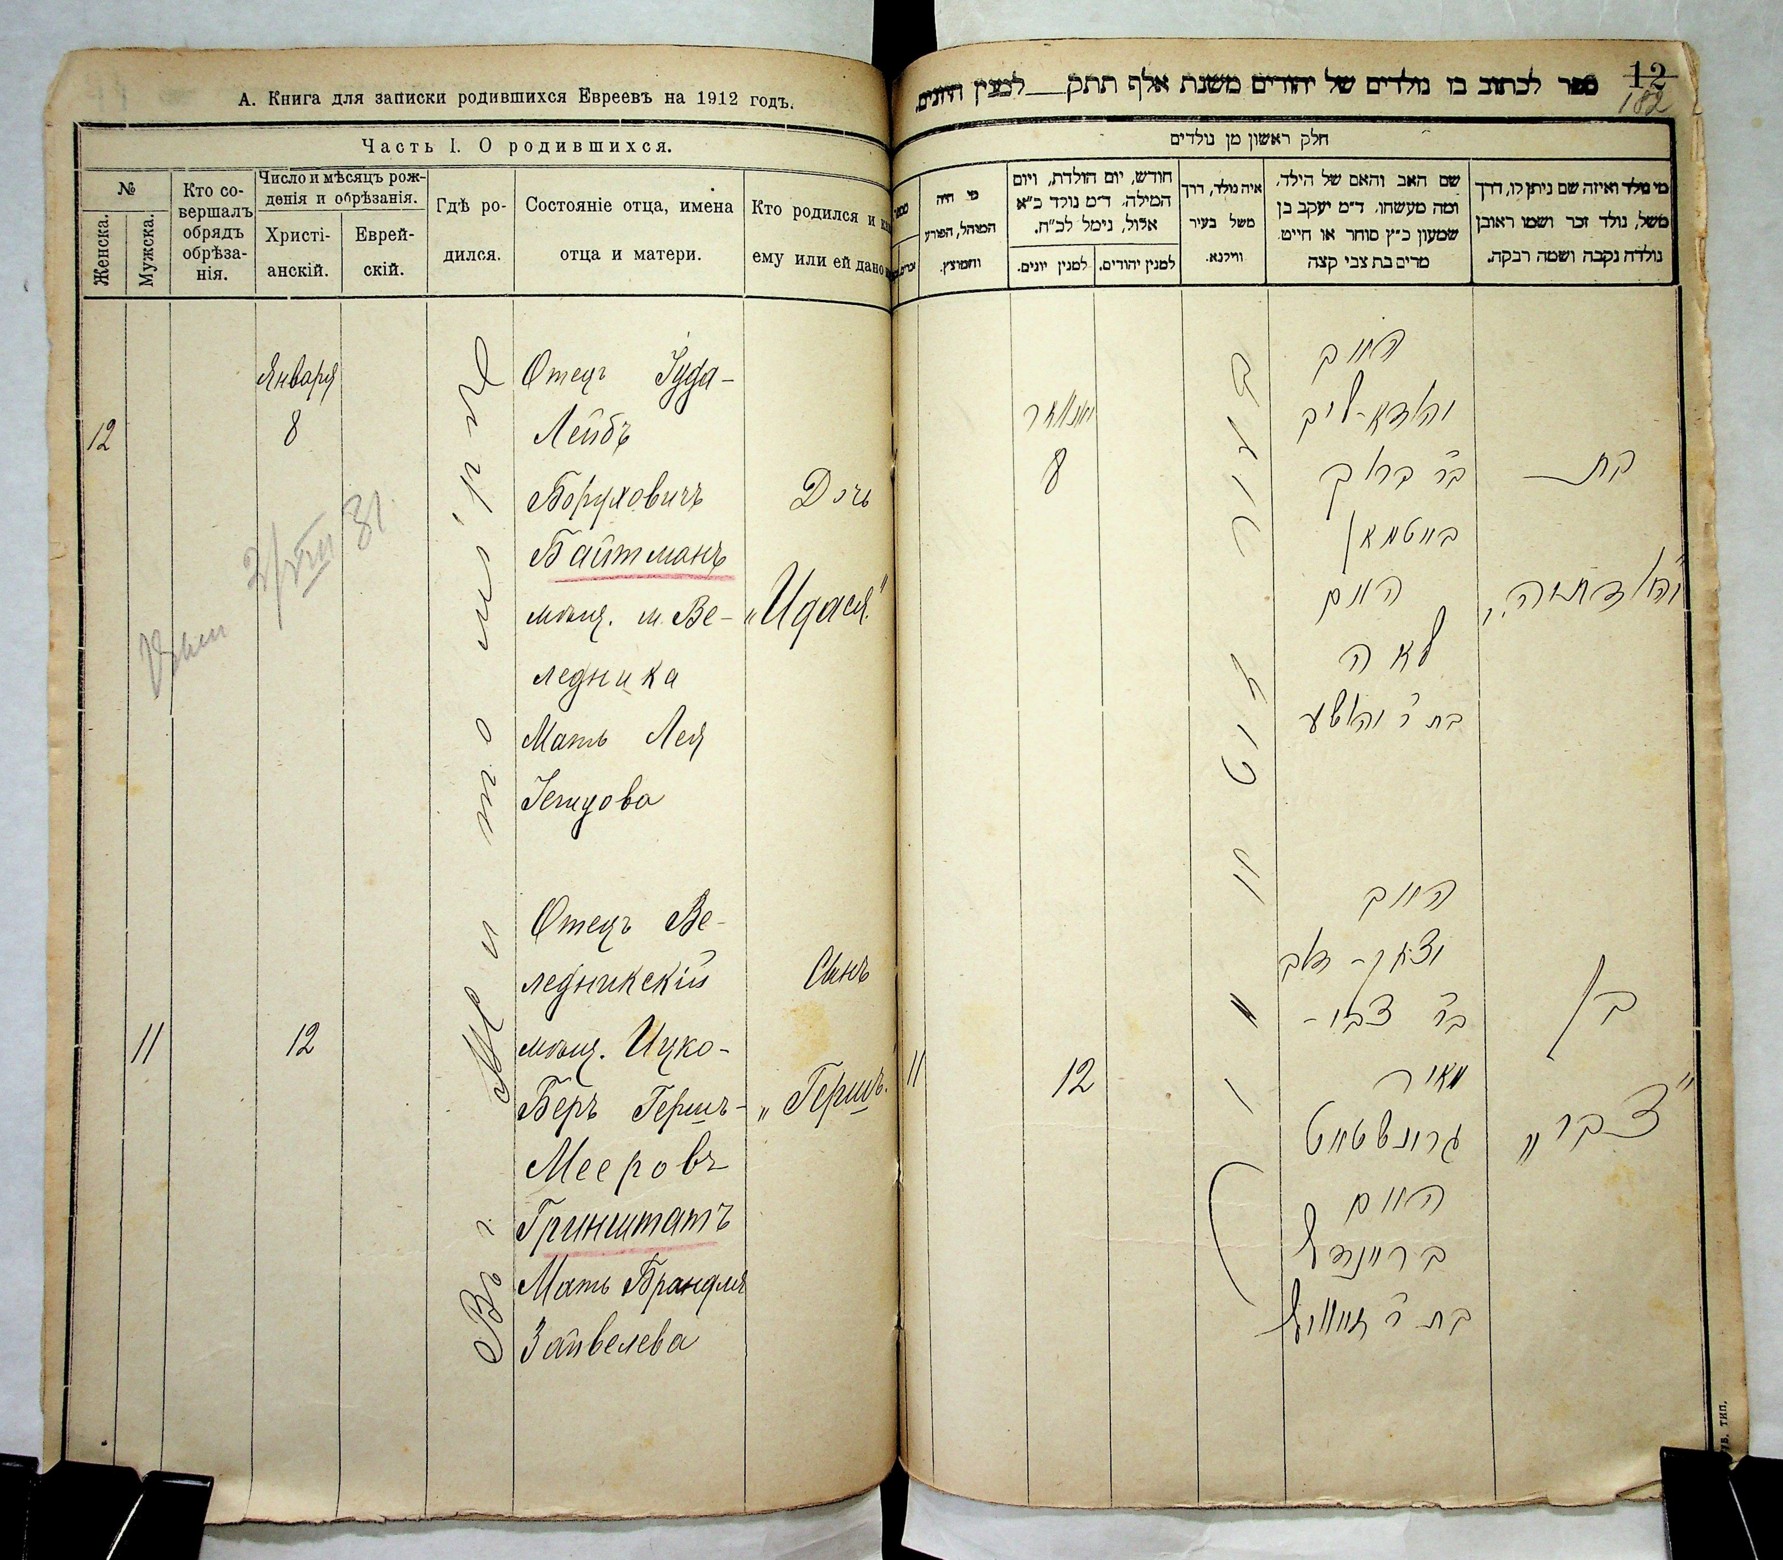 А. Книга для записки родившихся Евреевъ на 1912 годъ.
Часть I. О родившихся.
№
Женска.
Мужска.
Кто со-
вершалъ
обрядъ
обрѣза-
нія.
Число и мѣсяцъ рож-
денія и обрѣзанія.
Христі-
анскій.
Еврей-
скій.
Гдѣ ро-
дился.
Состояніе отца, имена
отца и матери.
Кто родился и
ему или ей дано
Января
12
8
Отецъ Іуда-
Лейбъ
Боруховичъ
Байтманъ
мѣщ. м. Ве-
ледника
Мать Лея
Дочь
„Идася"
Въ г. Житомірѣ
Отецъ Ве-
ледникскій
мѣщ. Ицко-
Беръ Гершъ-
Мееровъ
Гринштатъ
Мать Брандля
Зайвелева
11
12
Сынъ
„Гершъ"
12
182
ספר לכתוב בו נולדים של יהודים משנת אלף תתק למנין היונים
חלק ראשון מן נולדים
מי נולד ואיזה שם ניתן לו, דרך
משל, נולד זכר ושמו ראובן
נולדה נקבה ושמה רבקה.
שם האב והאם של הילד,
ומה מעשהו. ד״מ יעקב בן
שמעון כ״ץ סוחר או חייט.
מרים בת צבי קצב
איה נולד, דרך
משל בעיר
ווילנא.
חודש, יום הולדת, ויום
המילה, ד״מ נולד כ״א
אלול, נימל לכ״ח.
למנין יהודים.
למנין יונים.
מי היה
המוהל, הפורע
והמוצץ.
יאנואר
8
האב
יהודא-ליב
בר ברוך
בייטמאן
האם
לאה
בת ר יהושע
בת
זיטאמיר
11
12
האב
יצחק-דוב
בר צבי-
מאיר
גרינשטאט
האם
בריינדל
בת ר זיוויל
בן
„צבי"